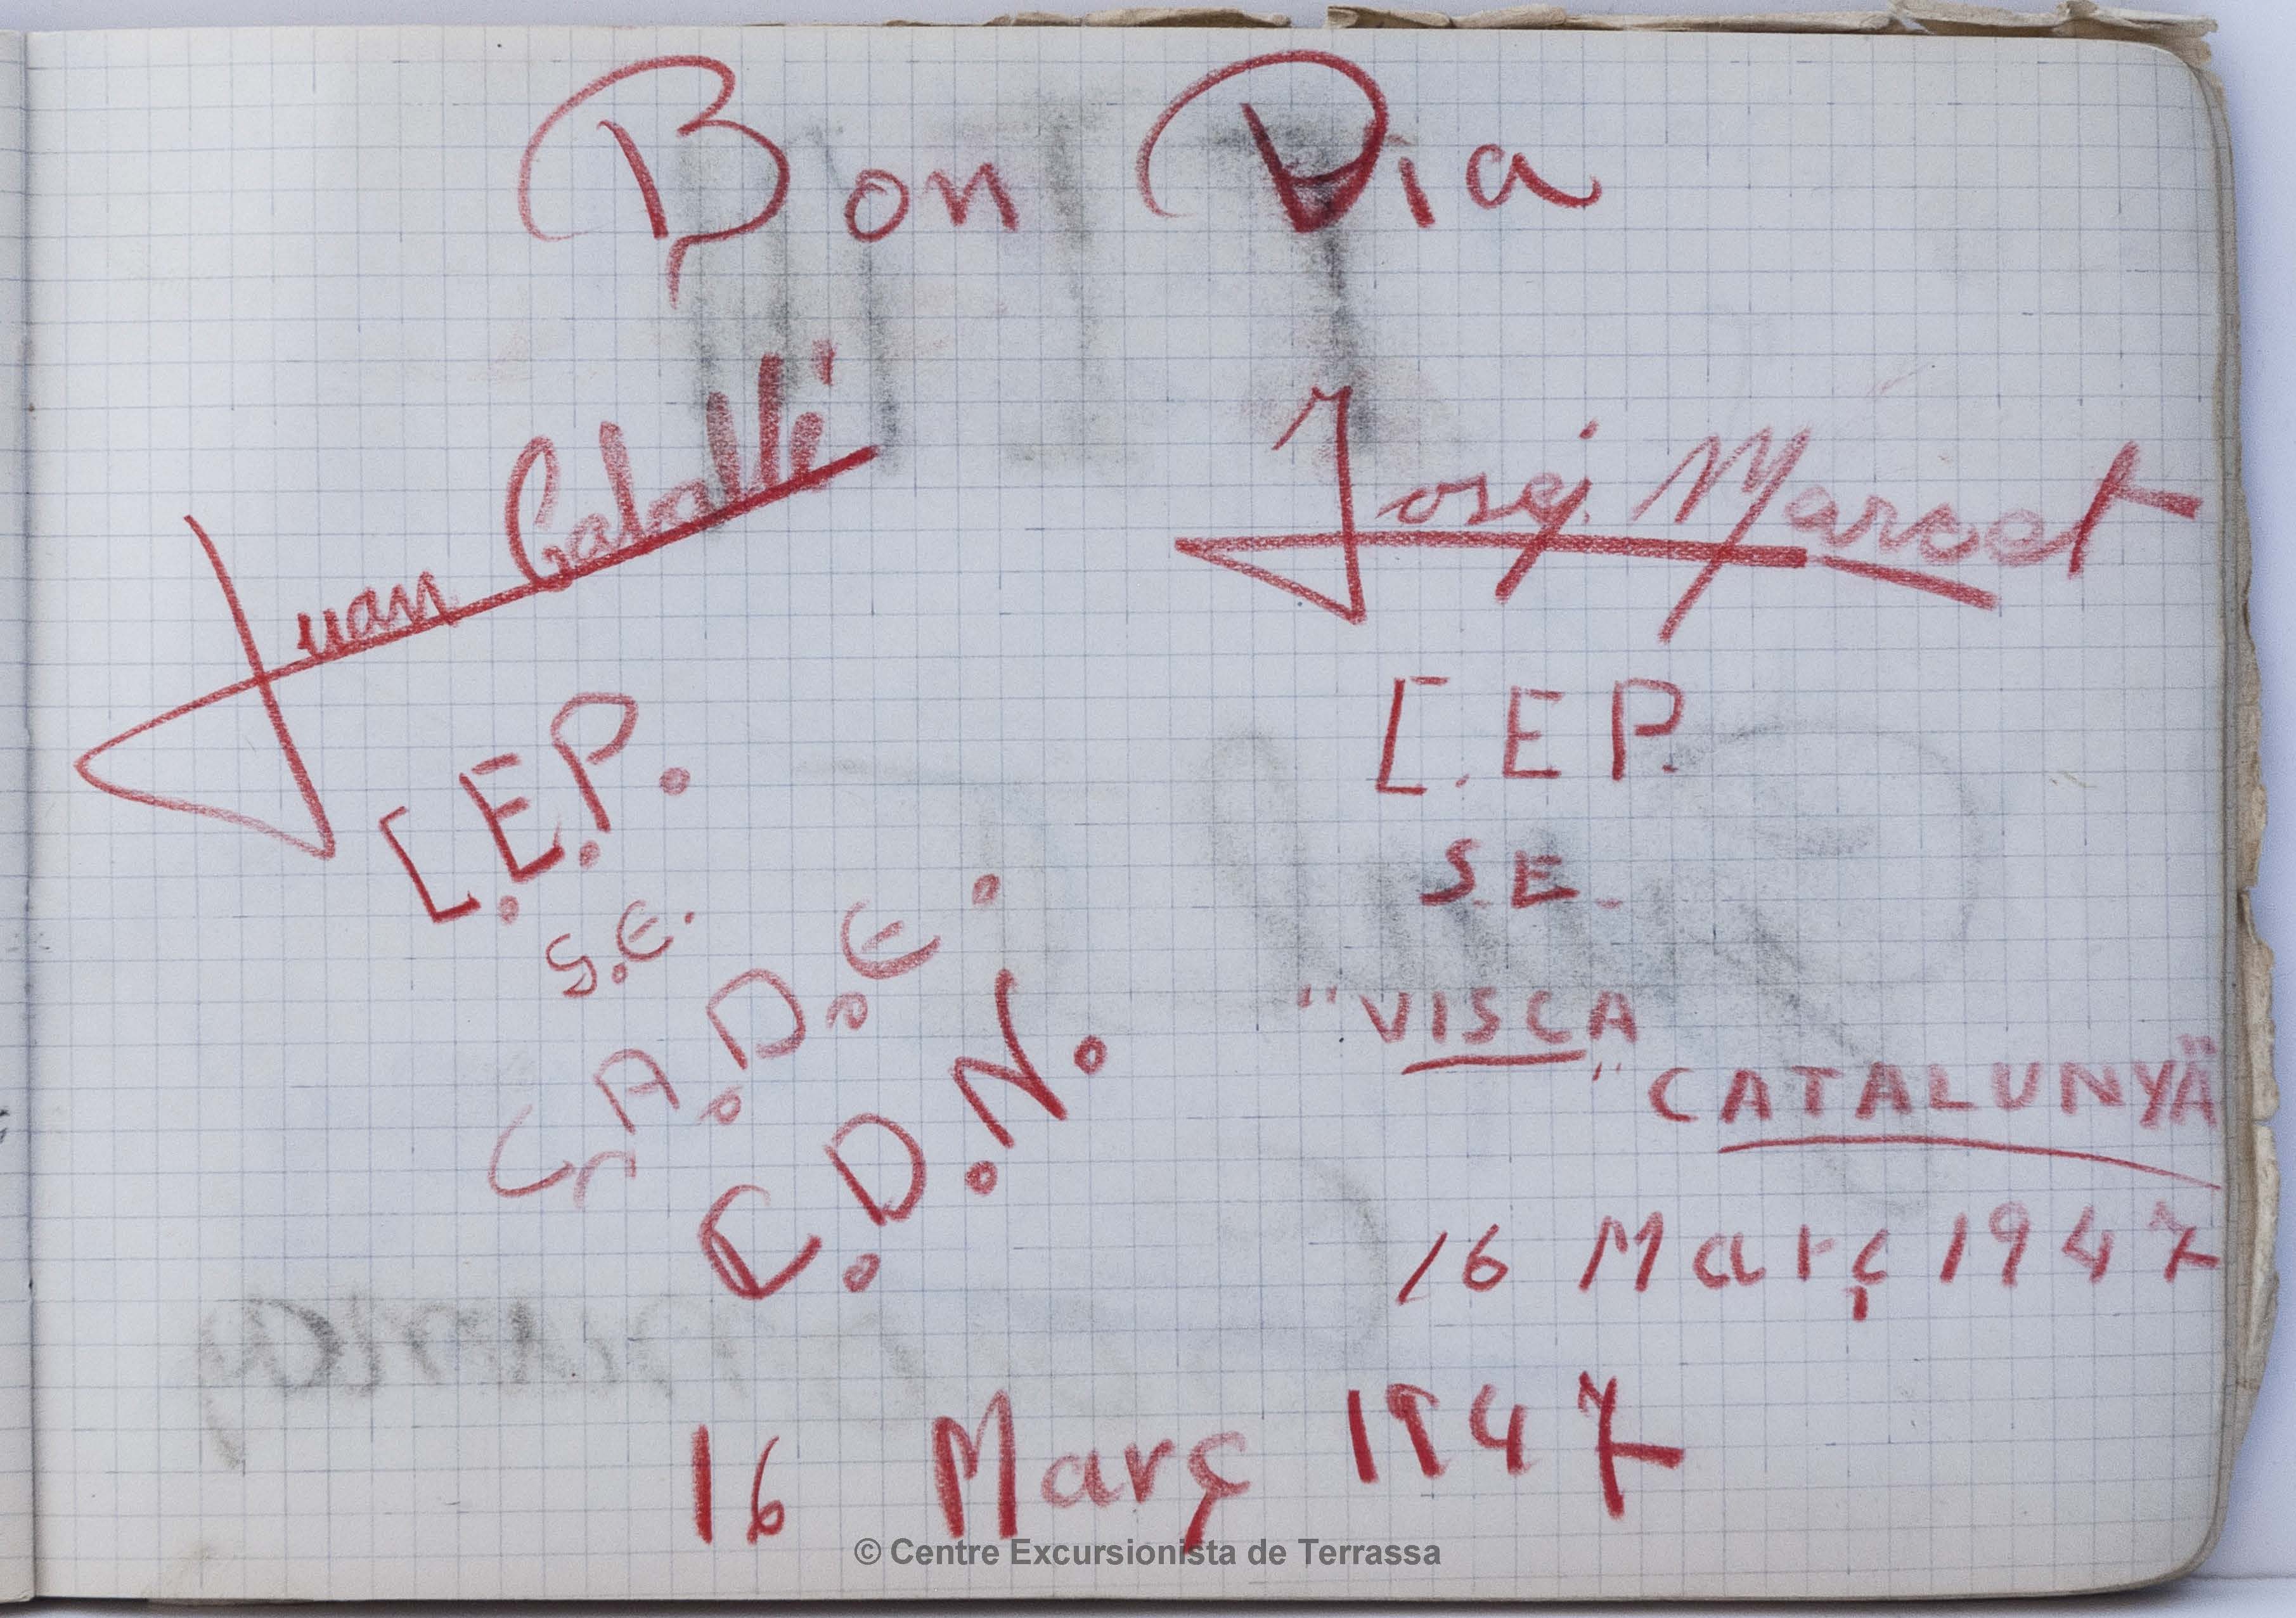 Bon Dia
Juan Caballí
C.E.P.
S.E.
C.A.D.E.
E.D.N.
Josep Marcet
C.E.P.
S.E.
"VISCA
"CATALUNYA"
16 Març 1947
16 Març 1947
© Centre Excursionista de Terrassa